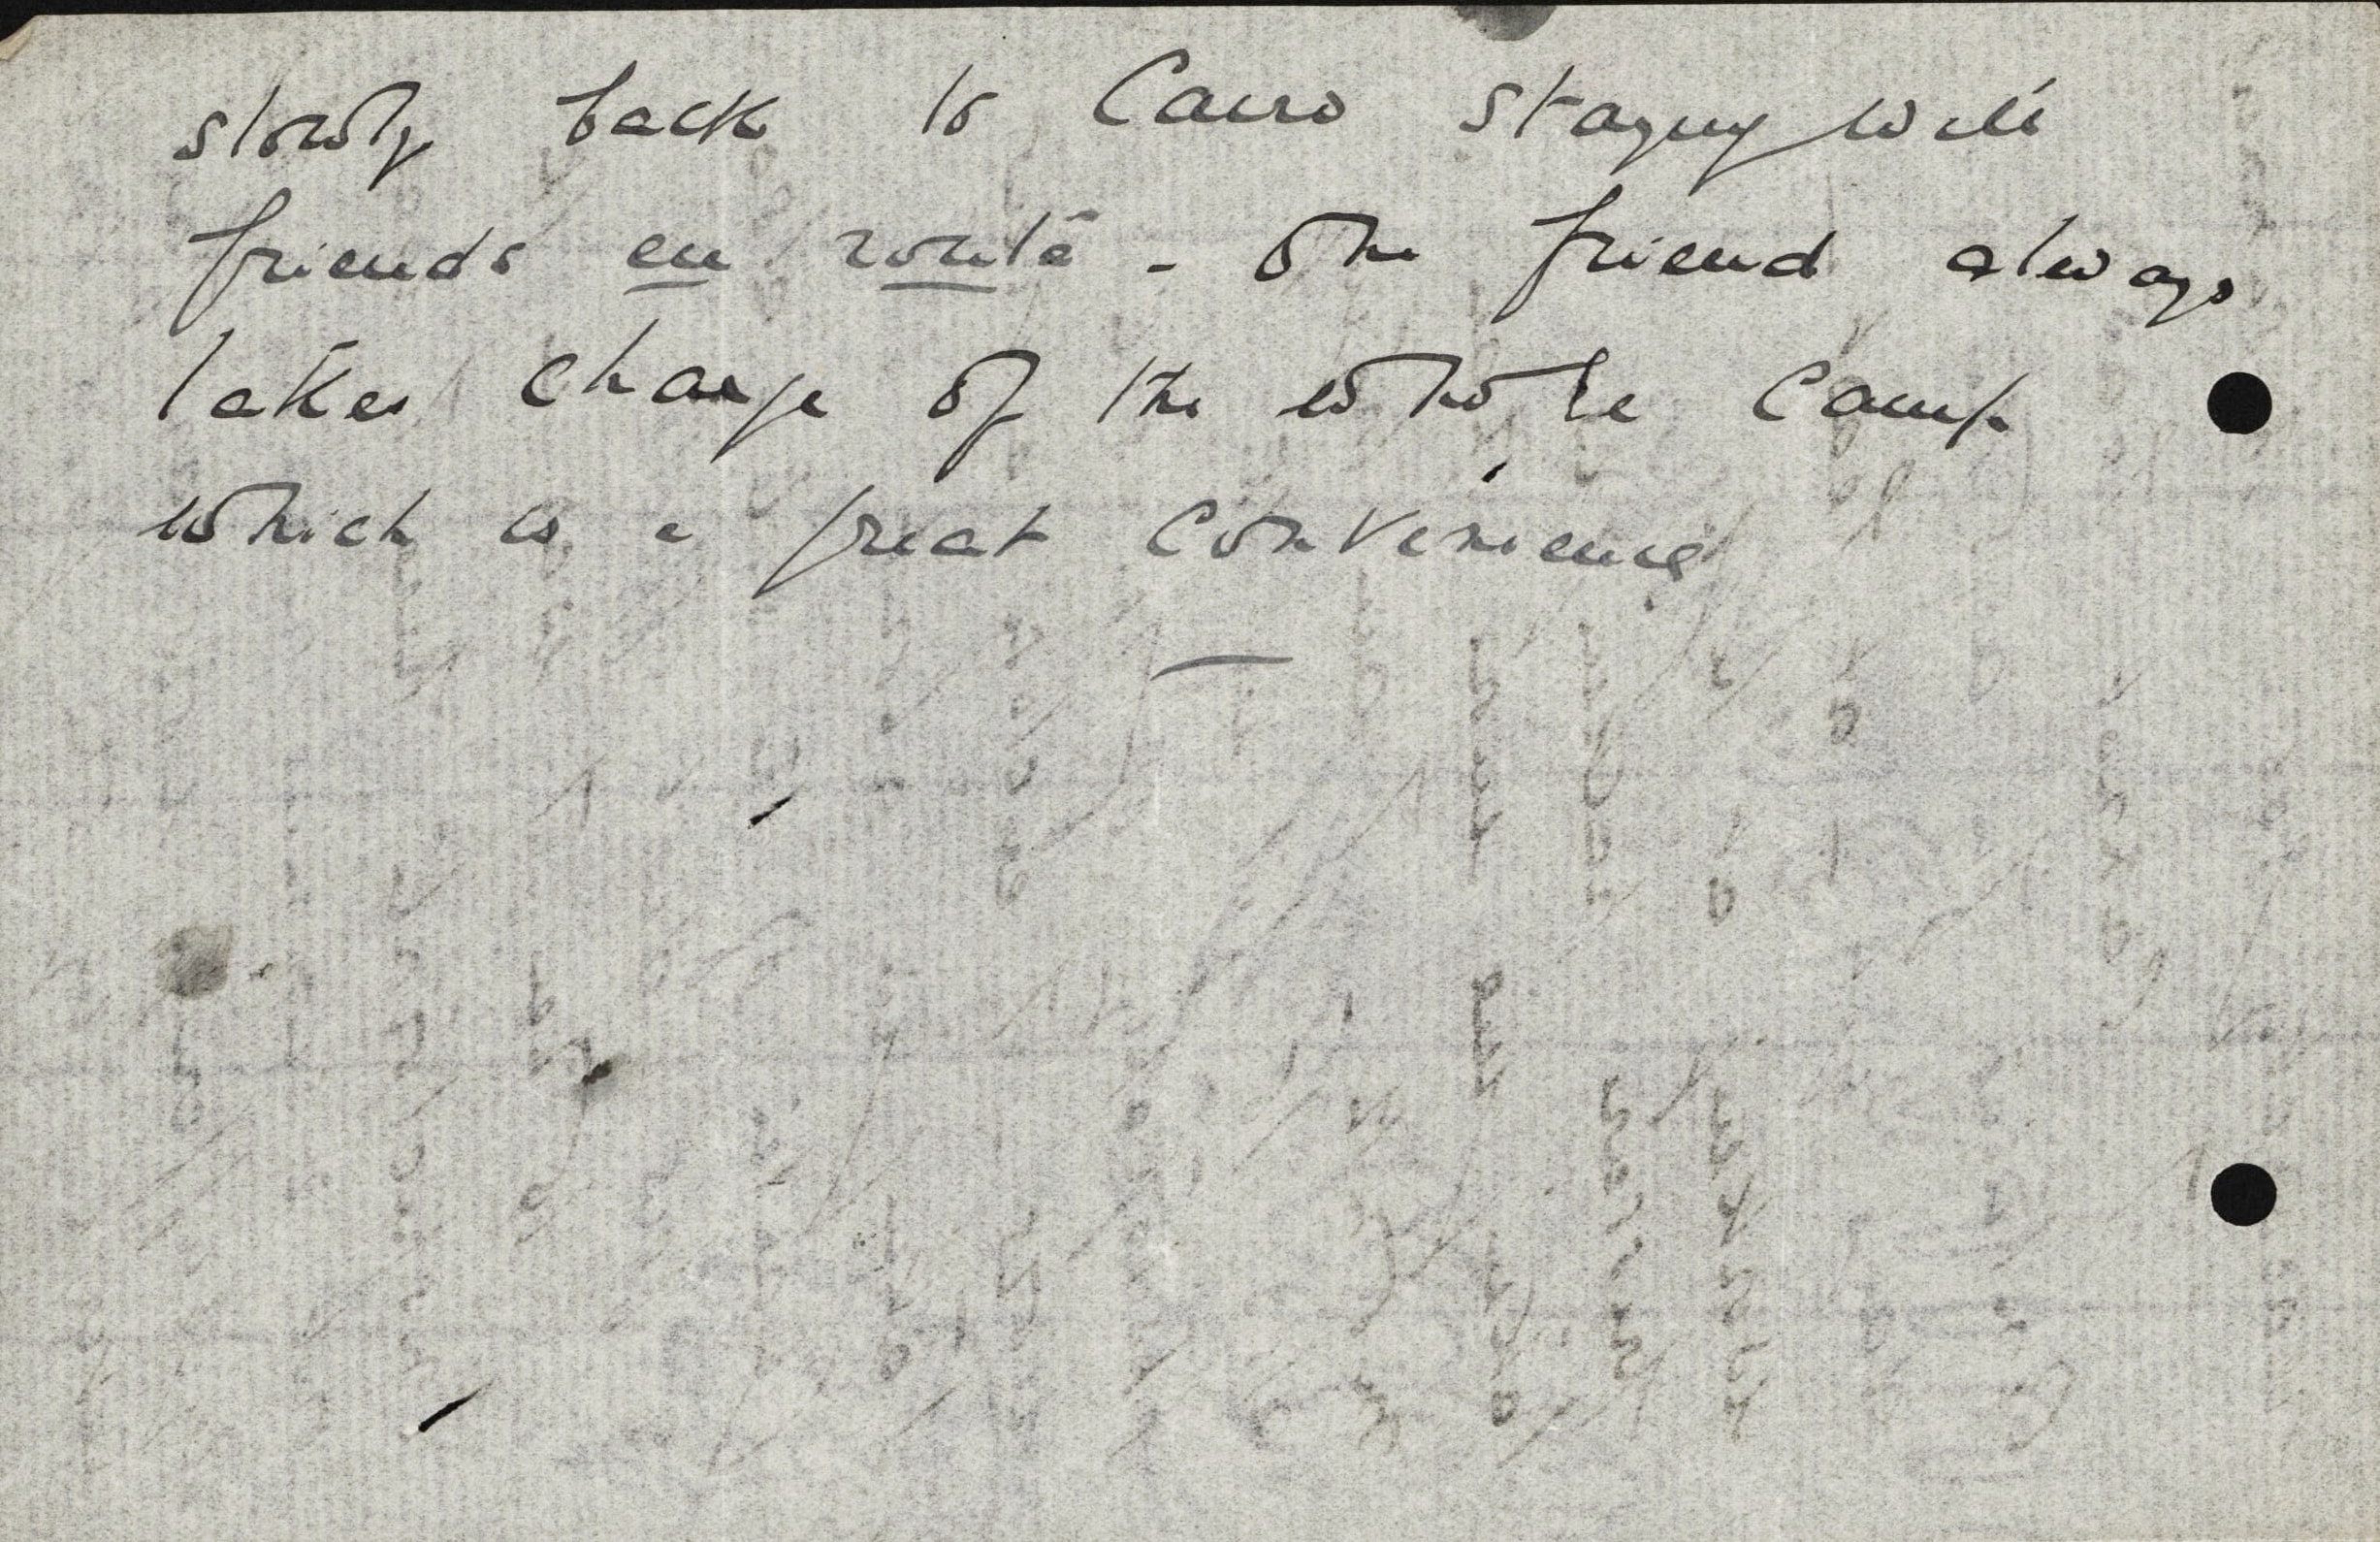 slowly back to Cairo staying with
friends en route - One friend always
takes charge of the whole camp
which is a great convenience